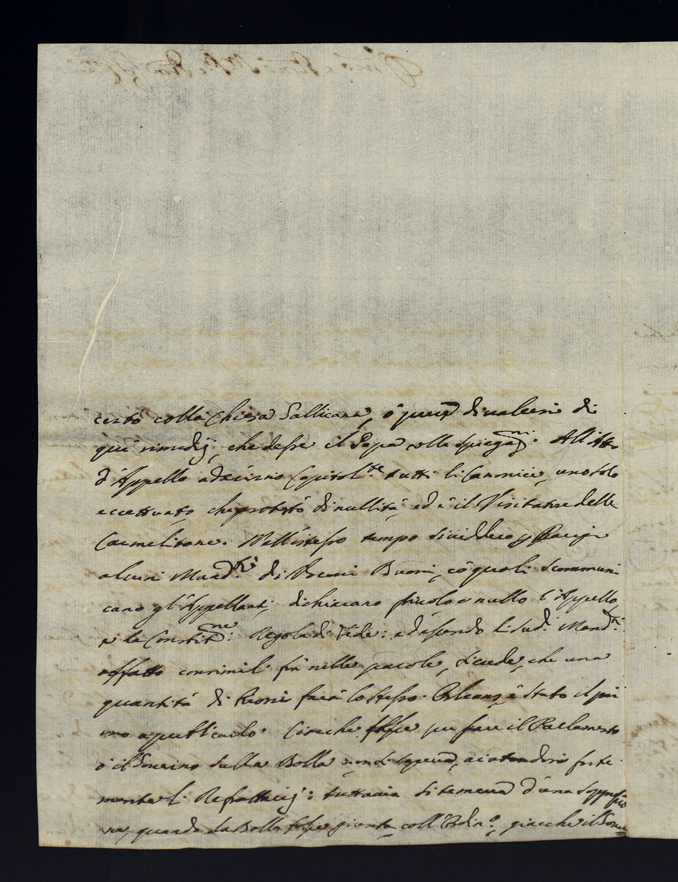 certo colla Chiesa Gallicana, ò pure di valersi di
quei rimedij, che desse il Papa colle spiegaz.ni. All'Atto
d'Appello aderirno Capitol.te tutti li Canonici, uno solo
eccettuato che protestò di nullità, ed è il Visitatore delle
Carmelitane. Nell'istesso tempo si viddero p Parigi
alcuni Mand.ti di Vescovi Buoni, co' quali scommuni
cano gl'Appellanti, dichiarano frivolo e nullo l'Appello
e la Constit.ne: Regola di Fede: ed essendo li sud.i Mand.ti
affatto consimili frà nelle parole, si crede, che una
quantità di Vescovi farà lo stesso. Orleans è stato il pri
mo a publicarlo. Circa che fosse per fare il Parlamento
ò il Governo sulla Bolla non si sapeva, aiutandosi forte
mente li Refrattarij: tuttavia si temeva d'una soppressio
ne, quando la Bolla fosse giunta coll'Ordin.o, giacche il